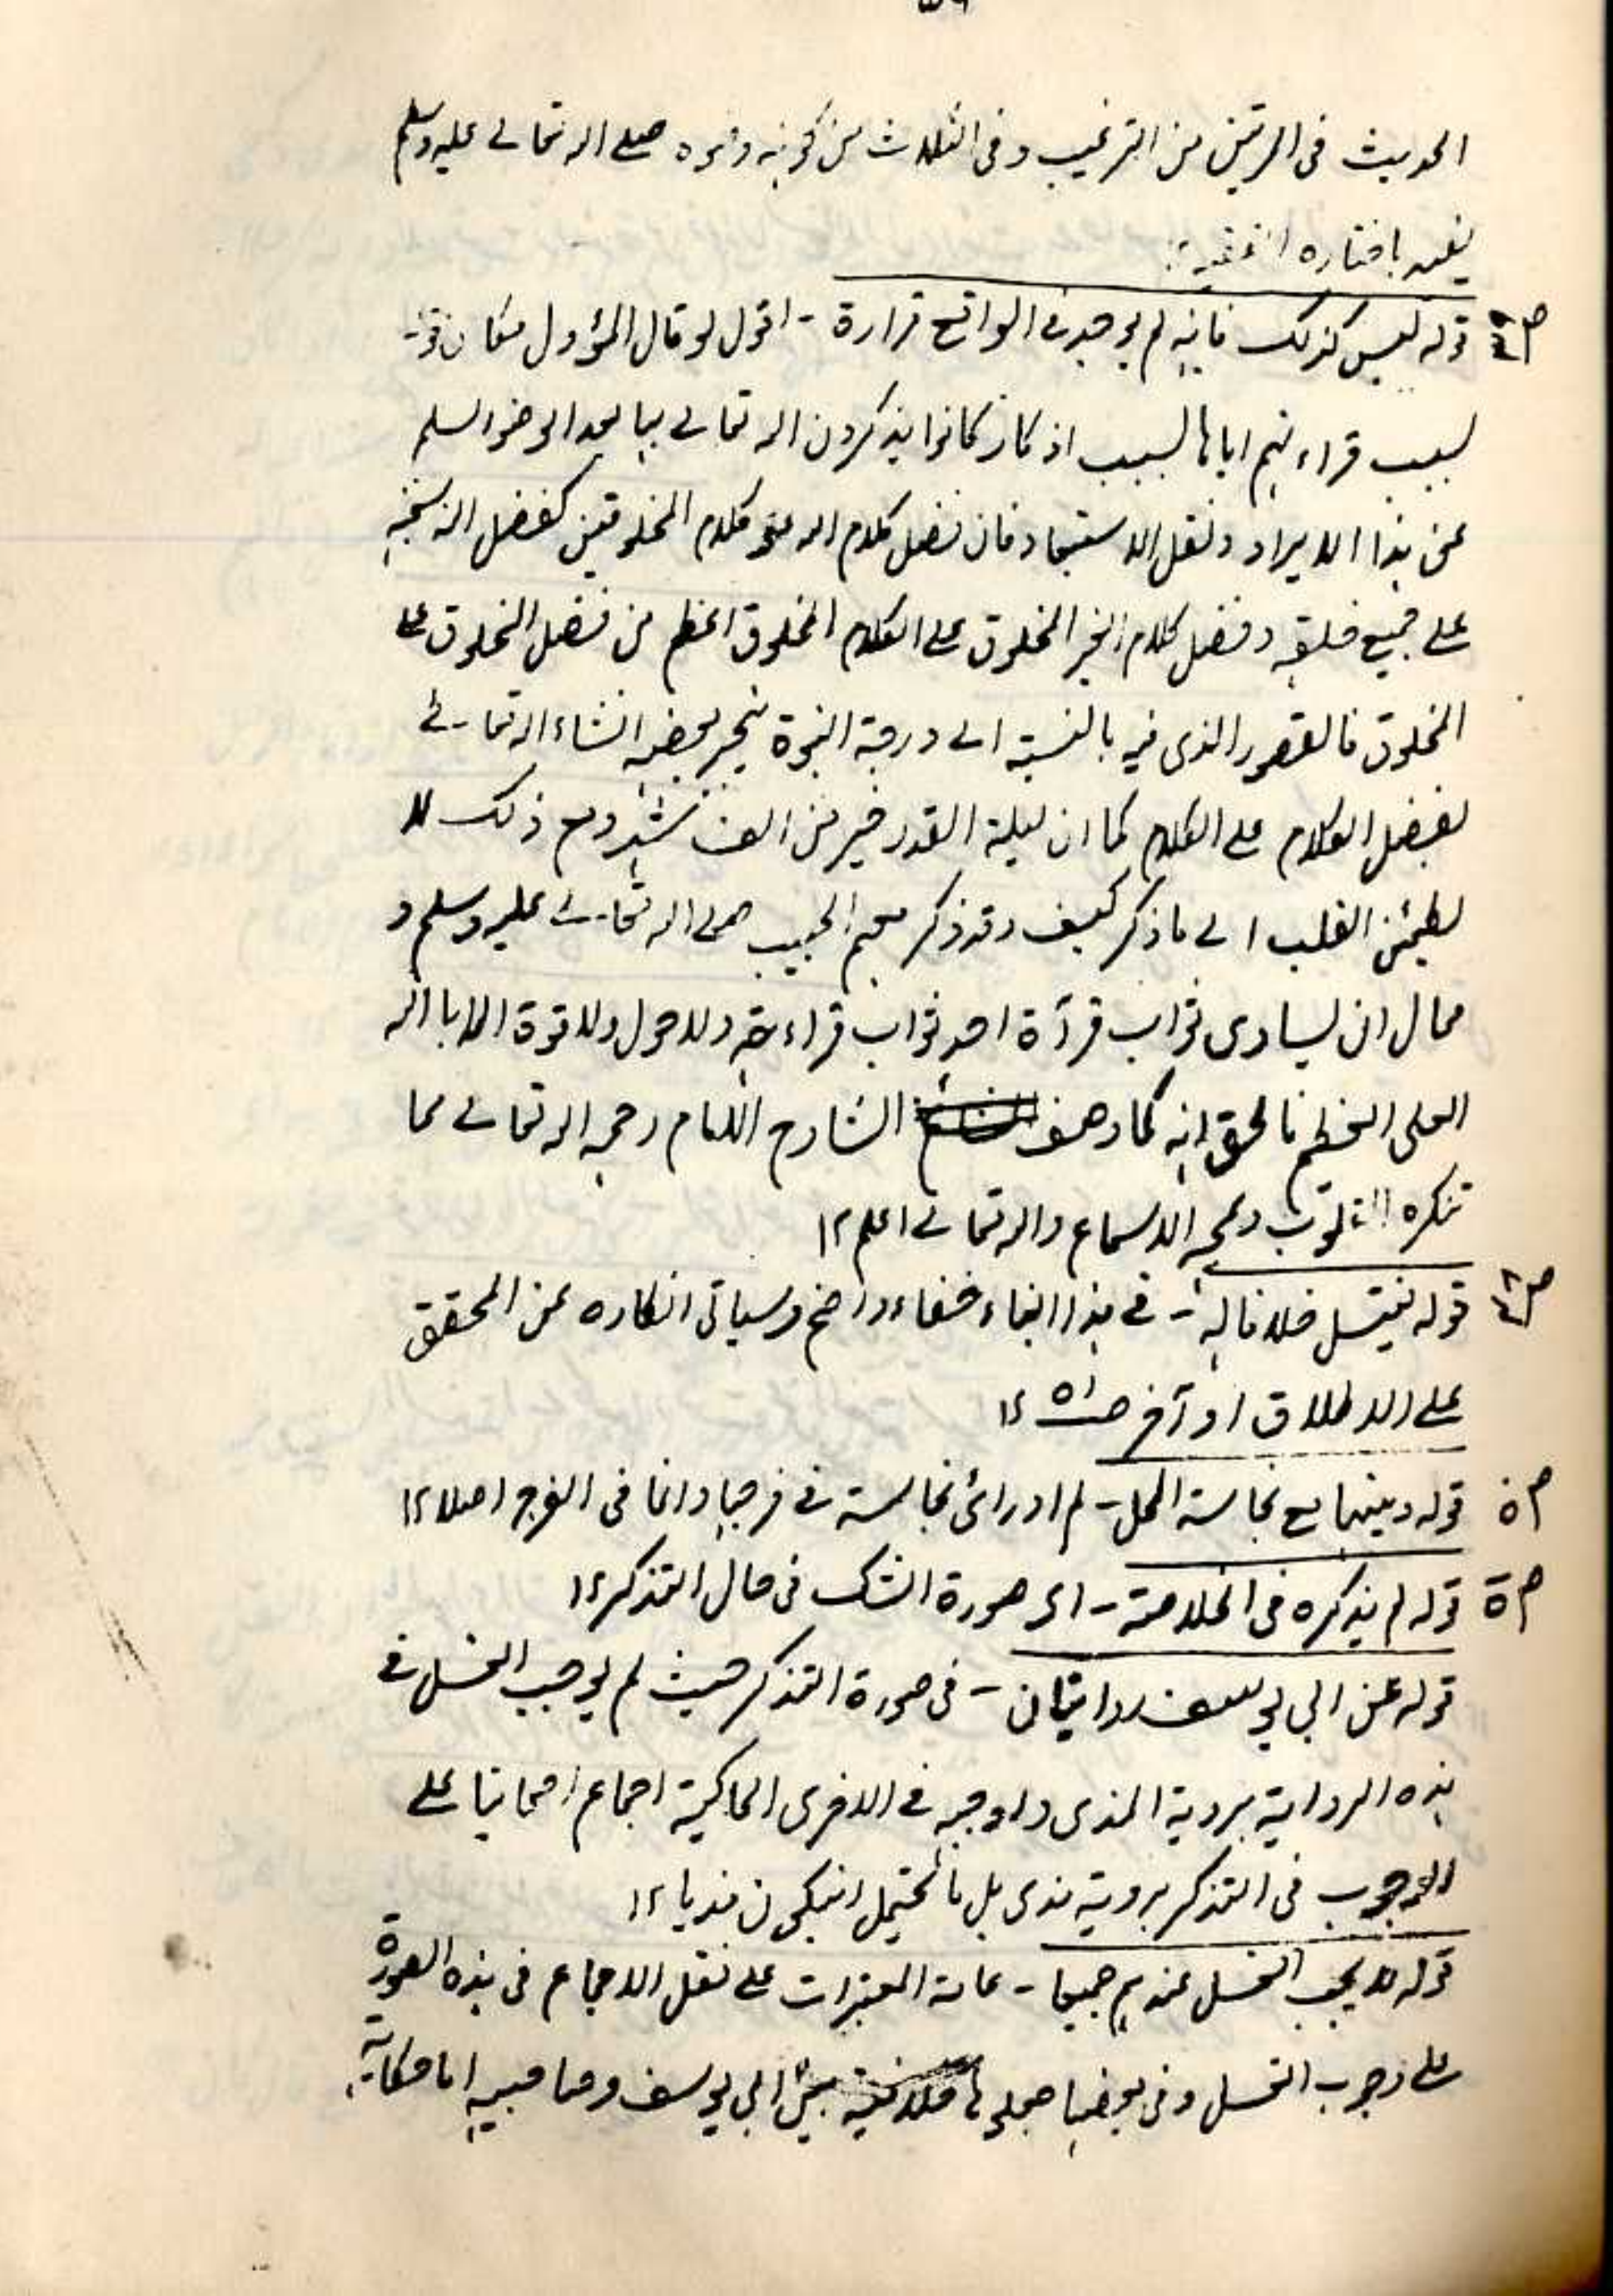 الحديث فى المرتين من الترغيب وفى الثلاث من كونه وضوءه صلے الله تعالے عليه وسلم
قوله ليس كذلك فانه لم يوجد فے الواقع قراءة - اقول لو قال المؤول مكان قوله
بسبب قراءتهم اياها لسبب اذكار كانوا يذكرون الله تعالے بها بعد الوضو لسلم
عن هذا الايراد ونقل الاستبعاد فان فضل كلام الله علے كلام المخلوقين كفضل الله سبحنه
علے جميع خلقه وفضل كلام الغير المخلوق علے الكلام المخلوق اعظم من فضل المخلوق علے
المخلوق فالقصور الذى فيه بالنسبة الے درجة النبوة ينجبر بعضه انشاء الله تعالے
بفضل الكلام علے الكلام كما ان ليلة القدر خير من الف شهر ومع ذلك لا
يطمئن القلب الے ما ذكر كيف وقد ذكر معهم الحبيب صلے الله تعالے عليه وسلم و
محال ان يساوى ثواب قرآة احد ثواب قراءته ولا حول ولا قوة الا بالله
العلى العظيم فالحق انه كما وصف الشارح الامام رحمه الله تعالے مما
تنكره القلوب وتمجه الاسماع والله تعالے اعلم ١٢
قوله فيتسل خلافا له - فے هذا البناء خفاء واضح وسياتى انكاره عن المحقق
علے الاطلاق او آخر صـ٥١ ١٢
قوله وبينهما مع نجاسة المحل - لم ادر اى نجاسة فے فرجها وانما فى الفرج اصلا ١٢
قوله لم يذكره فى الخلاصة - اى صورة الشك فى حال التذكر ١٢
قوله عن ابى يوسف روايتان - فى صورة التذكر حيث لم يوجب الغسل فے
هذه الرواية بروية المذى واوجبه فے الاخرى الحاكية اجماع اصحابنا علے
الوجوب فى التذكر بروية مذى بل ما يحتمل ان يكون مذيا ١٢
قوله لا يجب الغسل عندهم جميعا - عامة المعتبرات علے نقل الاجماع فى هذه الصورة
علے وجوب الغسل وفى بعضها جعلها خلافية بين ابى يوسف وصاحبيه اما حكاية